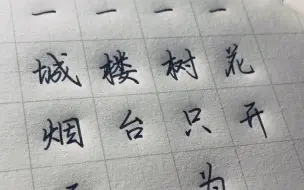 一 一 一 一
城 楼 树 花
烟 台 只 开
为